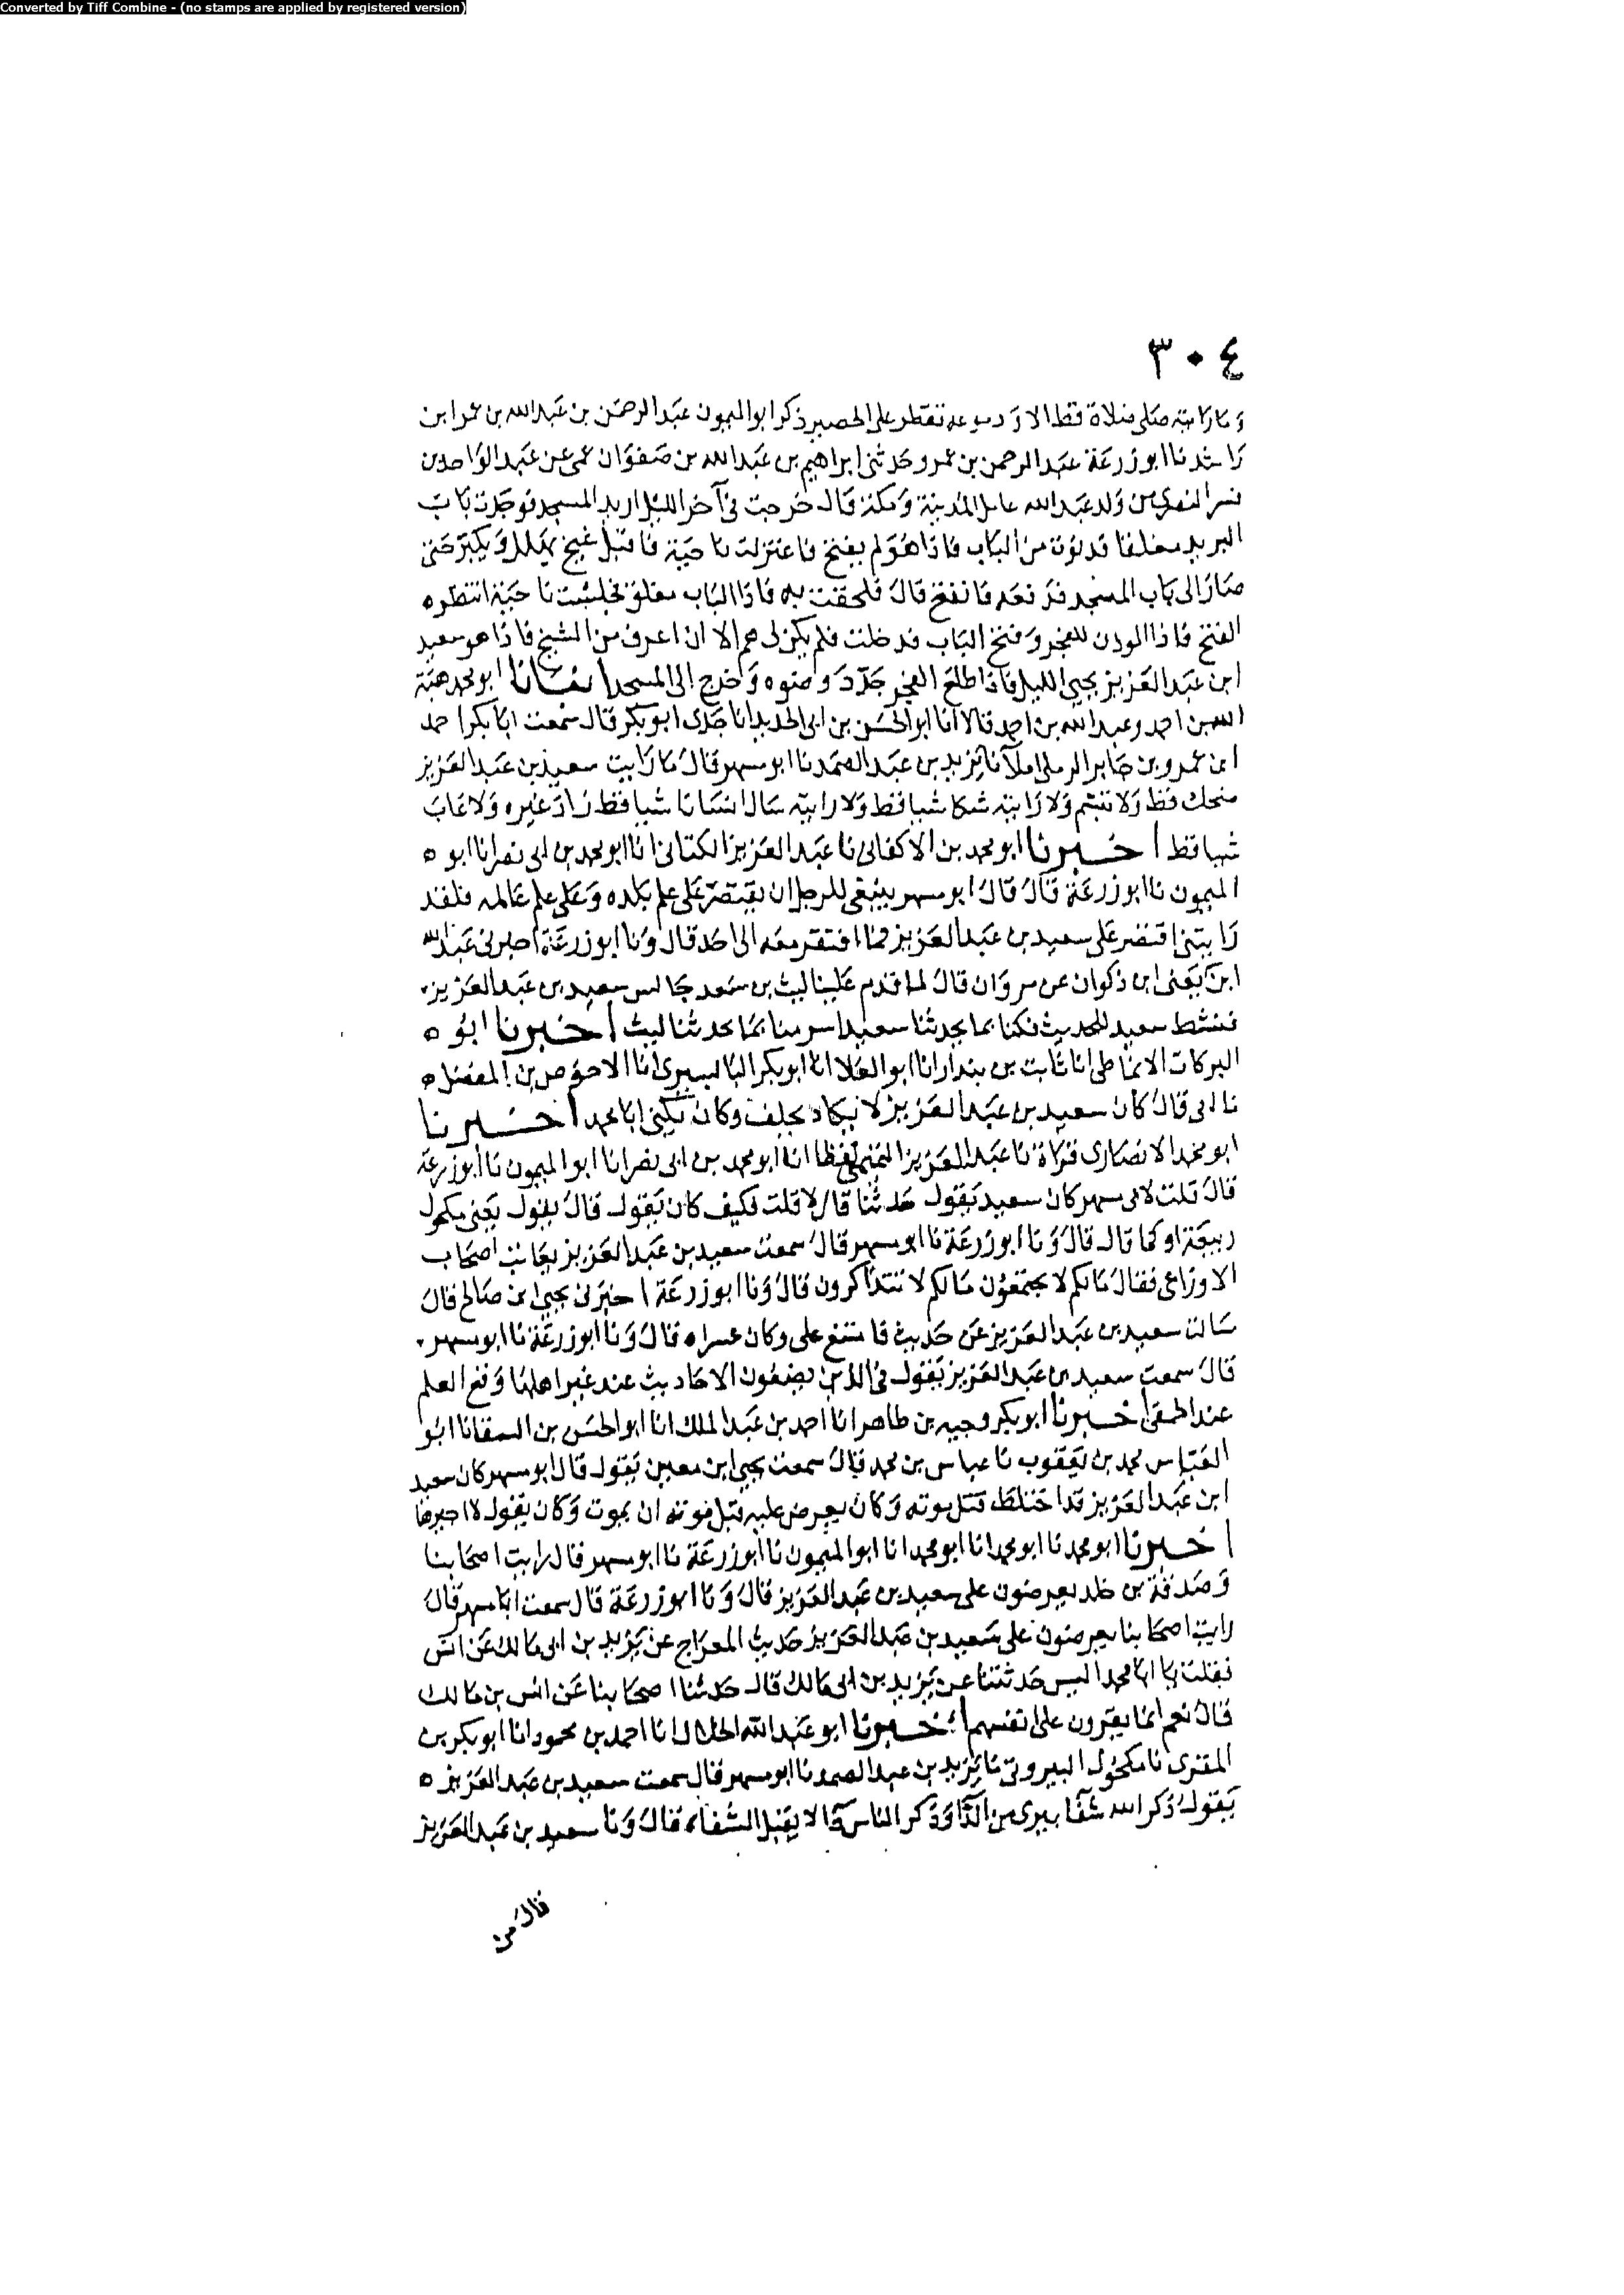 Converted by Tiff Combine - (no stamps are applied by registered version)
٣٠٤
وما رايته صلى صلاة قط الا ودموعه تقطر على الحصير ذكر ابو الميمون عبد الرحمن بن عبد الله بن عمر ابن
راشد نا ابو زرعة عبد الرحمن بن عمرو حدثني ابراهيم بن عبد الله بن صفوان عمي عن عبد الواحد بن
من ولد عبد الله عامل المدينة ومكة قال خرجت في آخر الليل اريد المسجد فوجدت باب
البريد مغلقا فدنوت من الباب فاذا هو لم يفتح فاعتزلت ناحية فاقبل شيخ يهلل ويكبر حتى
صار الى باب المسجد فدفعه فانفتح قال فلحقت به فاذا الباب مغلق فجلست ناحية انتظر ه
الفتح فاذا الموذن للفجر وفتح الباب فدخلت فلم يكن لي هم الا ان اعرف من الشيخ فاذا هو سعيد
ابن عبد العزيز يحيي الليل فاذا طلع الفجر جدد وضوه وخرج الى المسجد انبانا ابو محمد هبة
الله بن احمد وعبد الله بن احمد قالا انا ابو الحسن بن ابي الحديد انا جدي ابو بكر قال سمعت ابا بكر احمد
ابن عمرو بن جابر الرملي املآ نا يزيد بن عبد الصمد نا ابو مسهر قال ما رايت سعيد بن عبد العزيز
ضحك قط ولا تبسم ولا رايته شكا شيا قط ولا رايته سال انسانا شيا قط زاد غيره ولا عاب
شيا قط اخبرنا ابو محمد بن الاكفاني نا عبد العزيز الكتاني انا ابو محمد بن ابي نصر انا ابو ه
الميمون نا ابو زرعة قال قال ابو مسهر ينبغي للرجل ان يقتصر على علم بلده وعلى علم عالمه فلقد
رايتني اقتصر على سعيد بن عبد العزيز فما افتقر معه الى احد قال ونا ابو زرعة اخبرني عبد الله
ابن يعني ابن ذكوان عن مروان قال لما قدم علينا ليث بن سعد جالس سعيد بن عبد العزيز
فنشط سعيد للحديث فكنا بما يحدثنا سعيد اسر منا بما يحدثنا ليث اخبرنا ابو ه
البركات الانماطي انا ثابت بن بندار انا ابو العلا انا ابو بكر البابسيري انا الاحوص بن المفضل ه
نا ابي قال كان سعيد بن عبد العزيز لا يكاد يحلف وكان يكنى ابا محمد اخبرنا
ابو محمد الانصاري قراة نا عبد العزيز التميمي لفظا انا ابو محمد بن ابي نصر انا ابو الميمون نا ابو زرعة
قال قلت لابي مسهر كان سعيد يقول حدثنا قال لا قلت فكيف كان يقول قال يقول يعني مكحول
ربيعة او كما قال قال ونا ابو زرعة نا ابو مسهر قال سمعت سعيد بن عبد العزيز يعاتب اصحاب
الاوزاعي فقال مالكم لا تجتمعون مالكم لا تتذاكرون قال ونا ابو زرعة اخبرني يحيى ابن صالح قال
سالت سعيد بن عبد العزيز عن حديث فامتنع علي وكان عسرا ه قال ونا ابو زرعة نا ابو مسهر
قال سمعت سعيد بن عبد العزيز يقول في الذين يضعون الاحاديث عند غير اهلها وقع العلم
عند الحمقى اخبرنا ابو بكر وجيه بن طاهر انا احمد بن عبد الملك انا ابو الحسن بن السقا نا ابو
العباس محمد بن يعقوب نا عباس بن محمد قال سمعت يحيى ابن معين يقول قال ابو مسهر كان سعيد
ابن عبد العزيز قد اختلط قبل موته وكان يعرض عليه قبل موته ان يموت وكان يقول لا اجيزها
اخبرنا ابو محمد نا ابو محمد انا ابو محمد انا ابو الميمون نا ابو زرعة نا ابو مسهر قال رايت اصحابنا
وصدقة بن خلد يعرضون على سعيد بن عبد العزيز قال ونا ابو زرعة قال سمعت ابا مسهر قال
رايت اصحابنا يعرضون على سعيد بن عبد العزيز حديث المعراج عن يزيد بن ابي مالك عن انس
فقلت يا ابا محمد اليس حدثتنا عن يزيد بن ابي مالك قال حدثنا اصحابنا عن انس بن مالك
قال نعم انما يقرون على انفسهم اخبرنا ابو عبد الله الخلال انا احمد بن محمود انا ابو بكر بن
المقري نا مكحول البيروتي نا يزيد بن عبد الصمد نا ابو مسهر قال سمعت سعيد بن عبد العزيز ه
يقول ذكر الله شفا يبري من الدا وذكر الناس دا لا يقبل الشفاء قال ونا سعيد بن عبد العزيز
قال من